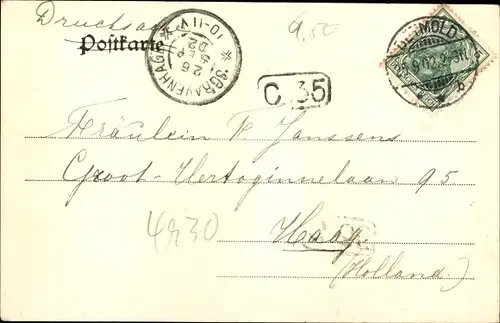 Drucksache
Postkarte
'SGRAVENHAGE
10-11 V
26
SEP
02
4.50
C 35
DETMOLD
Fräulein P. Janssens
Groot-Hertoginnelaan 95.
Haag
(Holland.)
4930